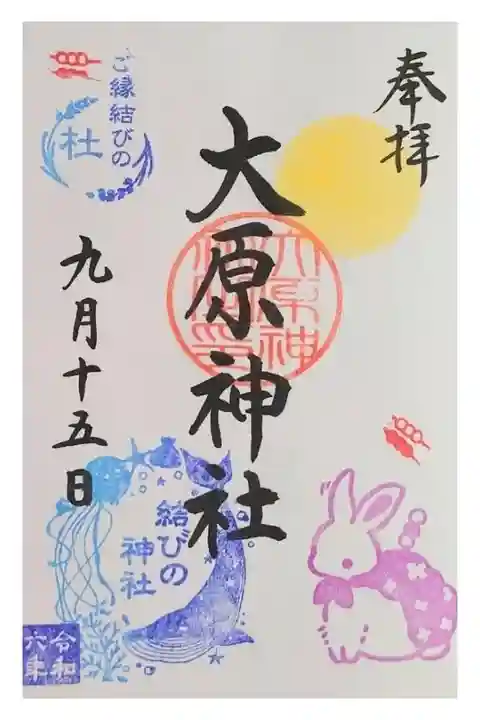 奉拝
大原神社
九月十五日
ご縁結びの
杜
結びの
神社
令和
六年